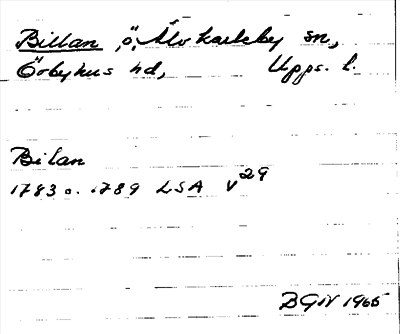 Billan, ö, Älvkarleby sn,
Örbyhus hd, Upps. l.
Bilan
1783 o. 1789 LSA V29
BGN 1965